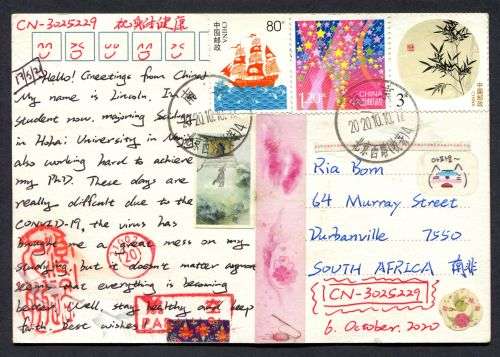 CN-3025229 祝身体健康
80分
CHINA
中国邮政
1.20元
CHINA
中国邮政
3元
中国邮政
CHINA
2020.10.10.17
Hello! Greetings from China!
My name is Lincoln. I'm
student now, majoring
in Hohai University in
also working hard to achieve
my PhD. These days are
really difficult due to the
COVID-19, the virus has
brought me a great mess on my
studying, but it doesn't matter
seems that everything is becoming
better. Well, stay healthy and keep
faith. Best wishes
Ria Bom
64 Murray Street
Durbanville 7550
SOUTH AFRICA 南非
CN-3025229
6. October. 2020